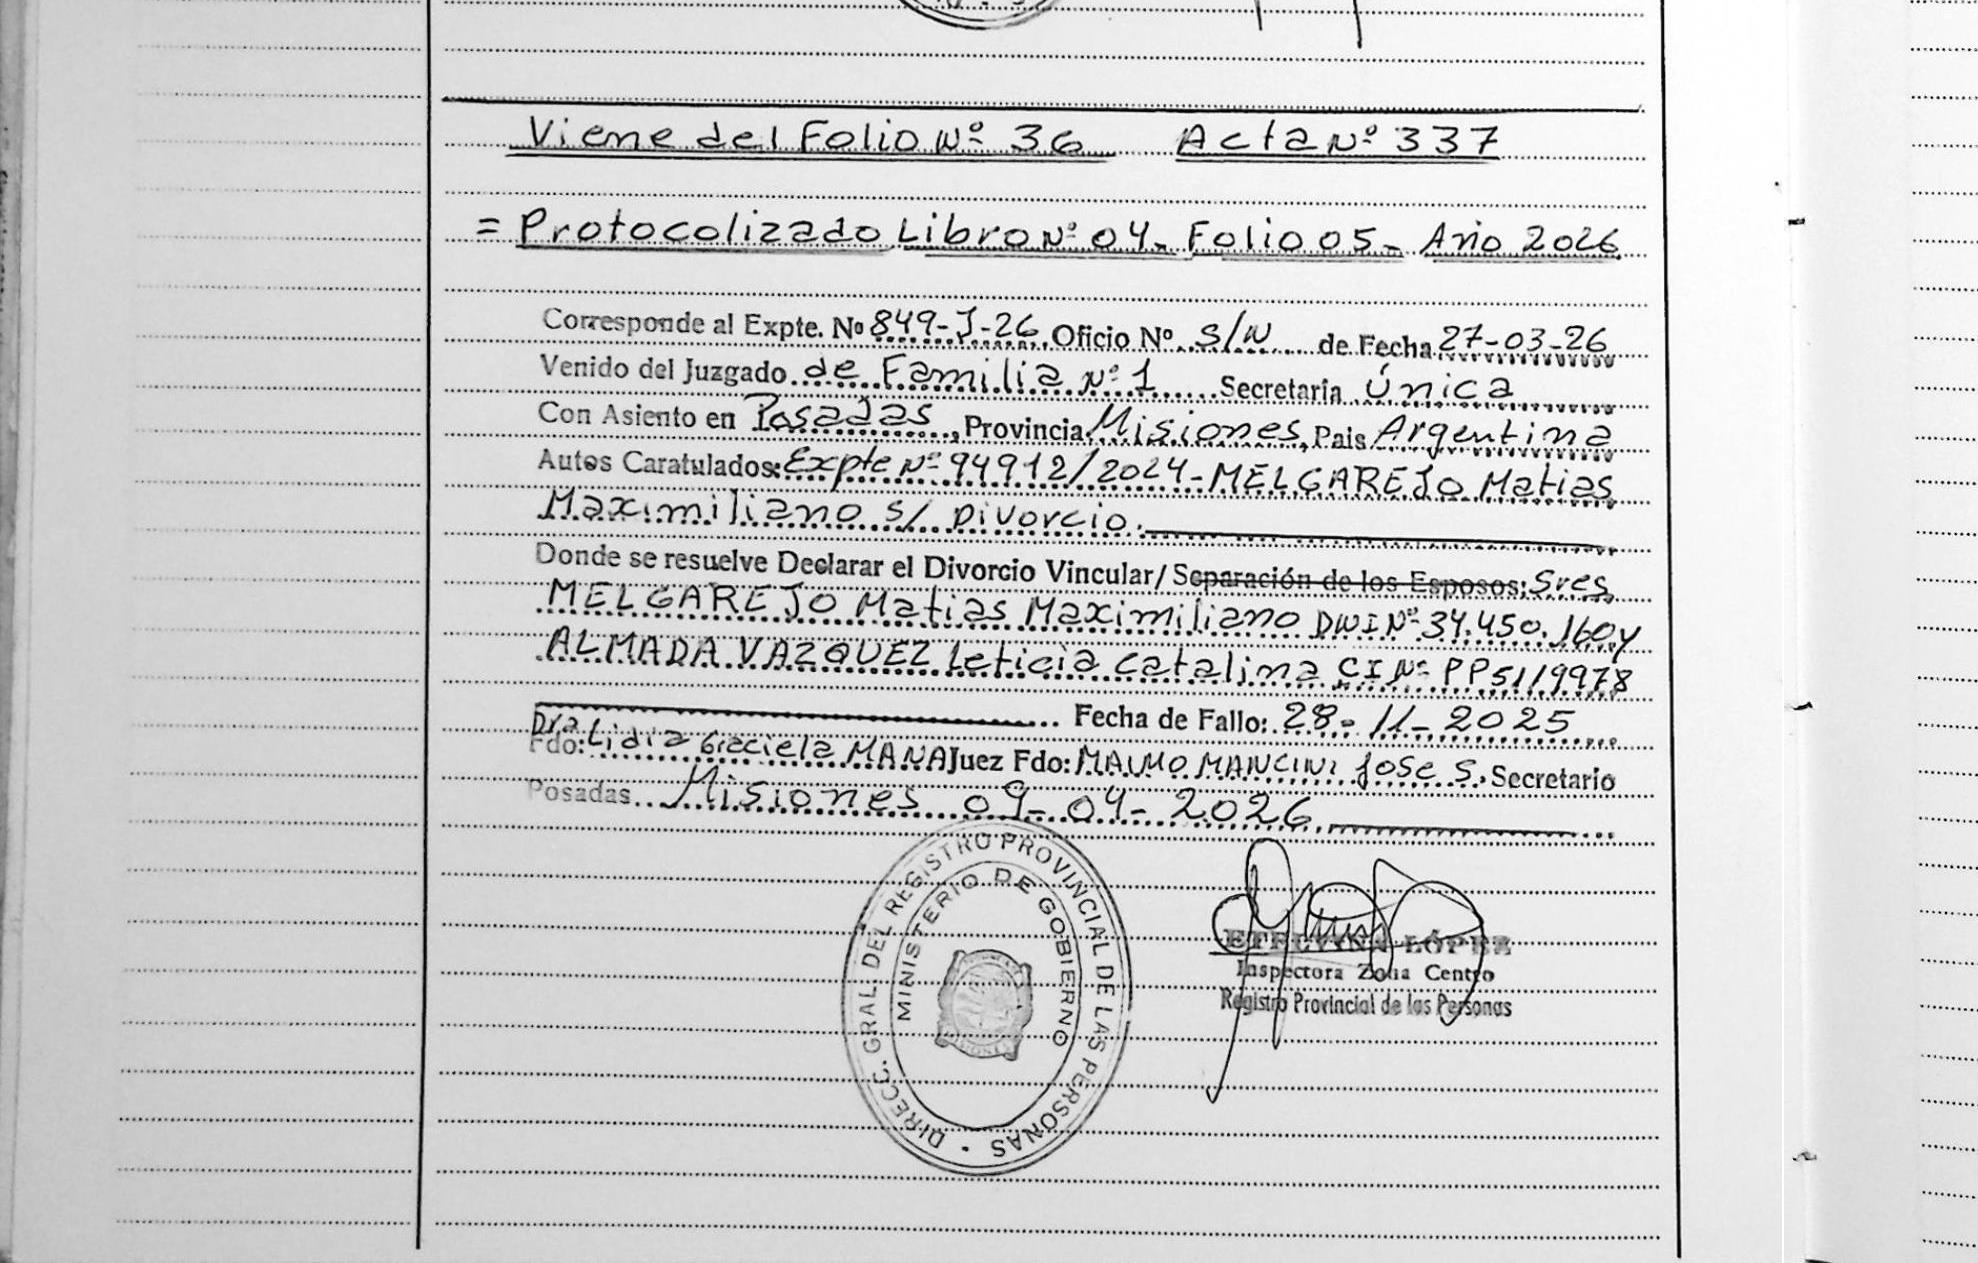 Viene del Folio Nº 36 Acta Nº 337
= Protocolizado Libro Nº 04- Folio 05- Año 2026
Corresponde al Expte. Nº 849-J-26. Oficio Nº S/N de Fecha 27-03-26
Venido del Juzgado de Familia Nº 1 Secretaria Única
Con Asiento en Posadas, Provincia Misiones, Pais Argentina
Autos Caratulados: Expte Nº 94912/2024-MELGAREJO Matias
Maximiliano S/ Divorcio.
Donde se resuelve Declarar el Divorcio Vincular/ Separación de los Esposos: Sres.
MELGAREJO Matias Maximiliano DNI Nº 34.450.160 y
ALMADA VAZQUEZ Leticia Catalina CI Nº PP5119978
Fecha de Fallo: 28-11-2025
Dra
Fdo: Lidia Graciela MANA Juez Fdo: MAUMO MANCINI Jose S. Secretario
Posadas Misiones 09-04-2026
DIRECC. GRAL. DEL REGISTRO PROVINCIAL DE LAS PERSONAS
MINISTERIO DE GOBIERNO
MISIONES
ETELVINA LÓPEZ
Inspectora Zona Centro
Registro Provincial de las Personas